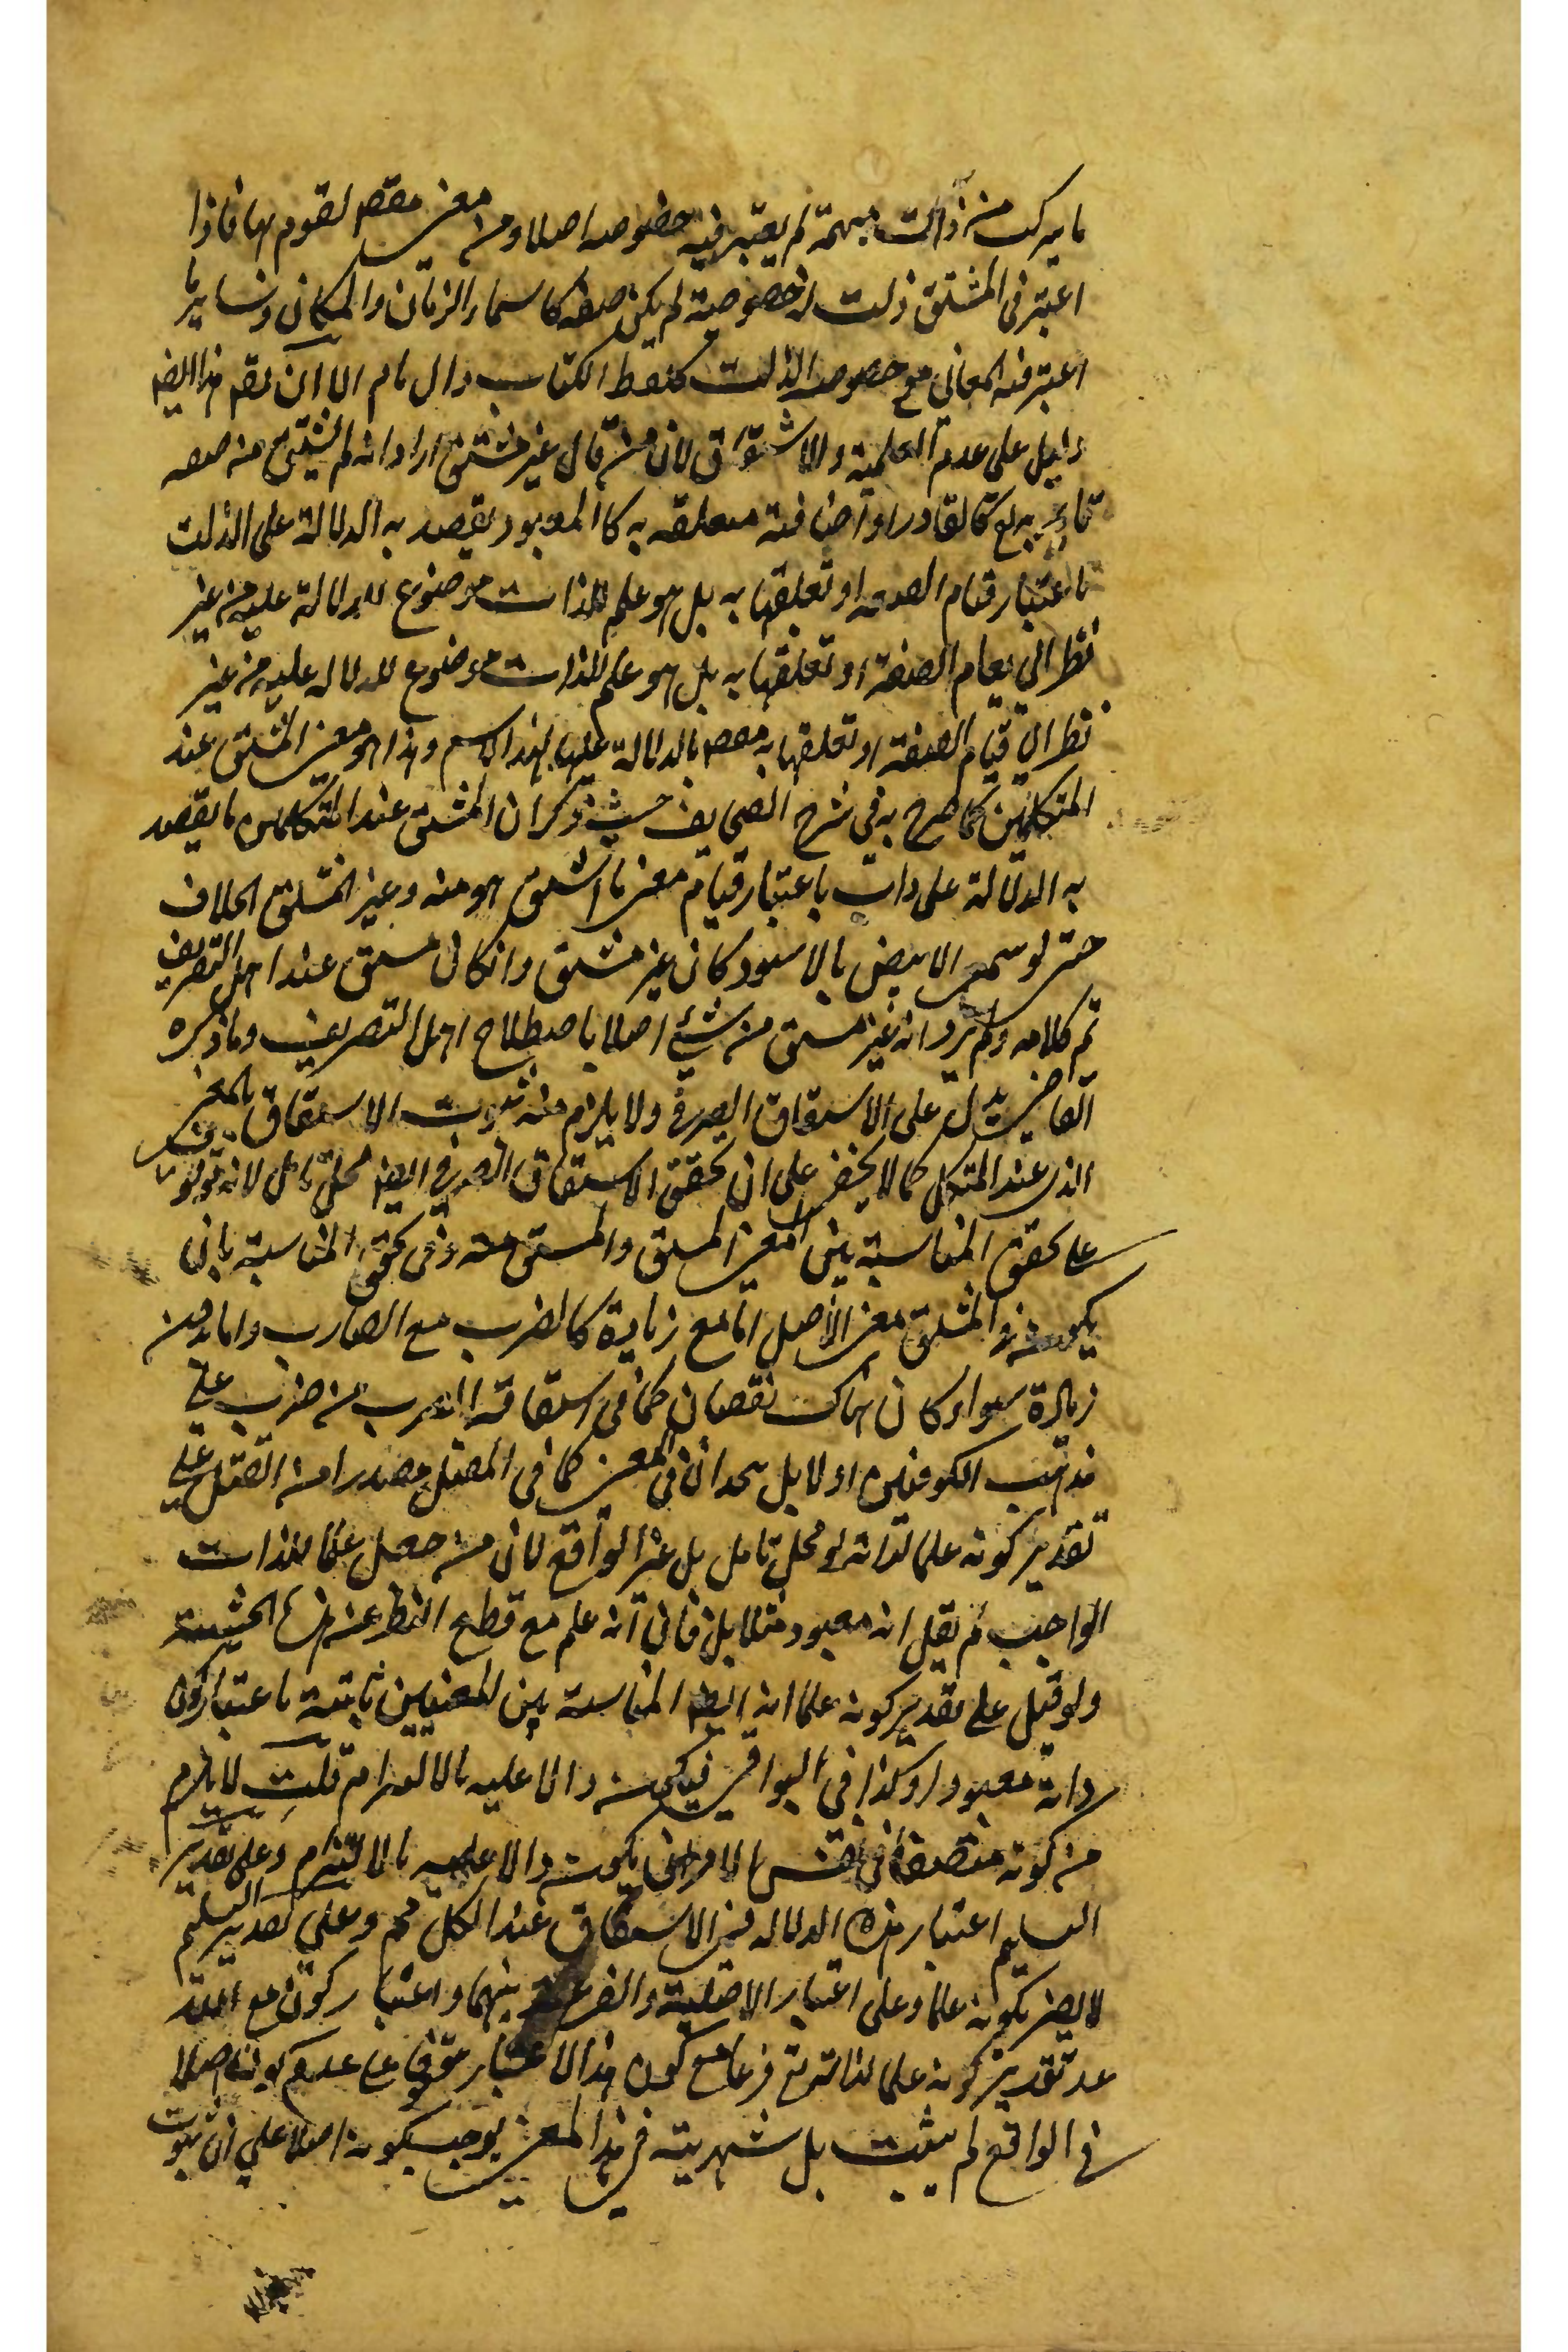 ما يركب من ذات مبهمة لم يعتبر فيه خصوصه اصلا ومن معنى معين لقوم بها فاذا
اعتبر فى المشتق ذلت الخصوصية لم يكن صفة كاسماء الزمان والمكان وساير ما
اعتبر فيه المعانى مع خصوص الذات كلفظ الكتاب وال مام الا ان هذا ايضا
دليل على عدم العلمية والاشتقاق لان من قال غير مشتق اراد انه لم يشتق من صفه
قايمة به تع كالقادر او اضافية متعلقه به كالمعبود يقصد به الدلالة على الذات
باعتبار قيام الصفه او تعلقها به بل هو علم للذات موضوع للدلالة عليه من غير
نظر الى قيام الصفة او تعلقها به بل هو علم للذات موضوع للدلاله عليه من غير
نظر الى قيام الصفة او تعلقها به بالدلالة عليها بهذا الاسم وهذا هو معنى المشتق عند
المتكلمين كما صرح به فى شرح الصحايف حيث ذكر ان المشتق عند المتكلمين ما يقصد
به الدلالة على ذات باعتبار قيام معنى ما اشتق هو منه وغير المشتق بخلاف
حتى لو سمى الابيض بالاسود كان غير مشتق وان كان مشتق عند اهل التصريف
تم كلامه ولم يرد انه غير مشتق من شئ اصلا باصطلاح اهل التصريف وما ذكره
القاضى يدل على الاشتقاق الصرفى ولا يلزم منه ثبوت الاشتقاق بالمعنى
الذى عند المتكلم كما لا يخفى على ان تحقق الاشتقاق الصرفى ايضا محل تامل لانه
على تحقق المناسبة بين المعنى المشتق والمشتق منه وفى تحقق المناسبة بان
يكون فى المشتق معنى الاصل اما مع زيادة كالضرب مع الضارب واما بدون
زيادة سواء كان هناك نقصان كما فى اشتقاق الضرب من ضرب على
مذهب الكوفيين اولا بل يتحدان فى المعنى كما فى المقتل مصدرا من القتل على
تقدير كونه علما لذاته تو محل تامل بل غير الواقع لان من جعل علما للذات
الواجب لم يقل انه معبود مثلا بل قال انه علم مع قطع النظر عن هذه الحيثية
ولو قيل على تقدير كونه علما انه ايضا المناسبة بين المعنيين ثابتة باعتبار كون
ذاته معبودا وكذا فى البواقى فيكون دالا عليه بالالتزام قلت لا يلزم
من كونه متصفا فى نفس الامر ان يكون دالا عليه بالالتزام وعلى تقدير
التسليم اعتبار هذه الدلاله فى الاشتقاق عند الكل مم وعلى تقدير التسليم
لا يضر بكونه علما وعلى اعتبار الاصلية والفرعية بينهما واعتبار كون مع الله
على تقدير كونه علما لذاته تع فرعا مع كون هذا الاعتبار موقوفا على عدم كونه اصلا
فى الواقع لم يثبت بل شهرته فى هذا المعنى يوجب كونه اصلا على ان ثبوت